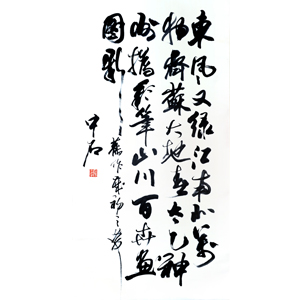 東風又綠江南北萬
物齊蘇大地春太乙神
州搖彩筆山川百卉畫
圖新
舊作
中石